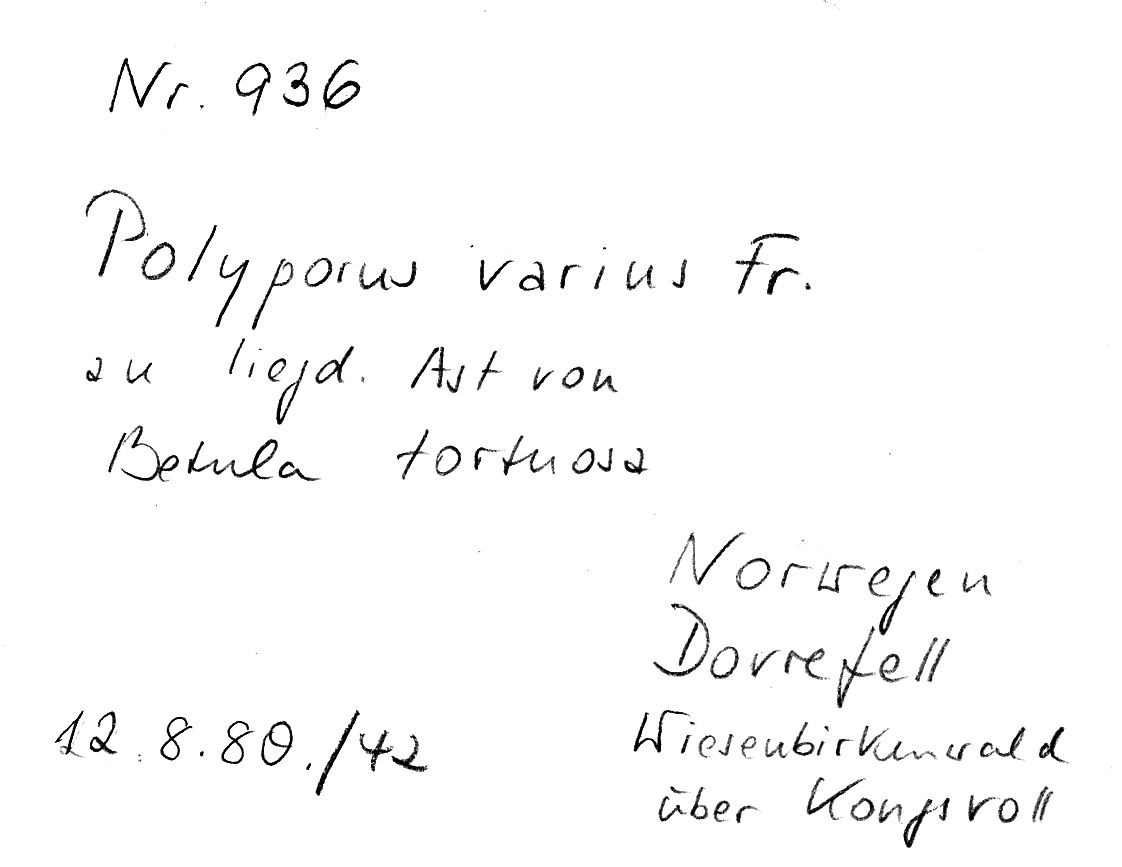 Nr. 936
Polyporus varius Fr.
an liegd. Ast von
Betula tortuosa
Norwegen
Dovrefell
Wiesenbirkenwald
über Kongsvoll
12.8.80./42